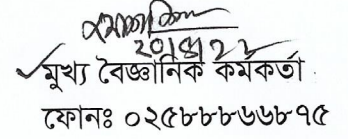 ২০/৪/২২
✓মুখ্য বৈজ্ঞানিক কর্মকর্তা
ফোনঃ ০২৫৮৮৮৬৬৮৭৫